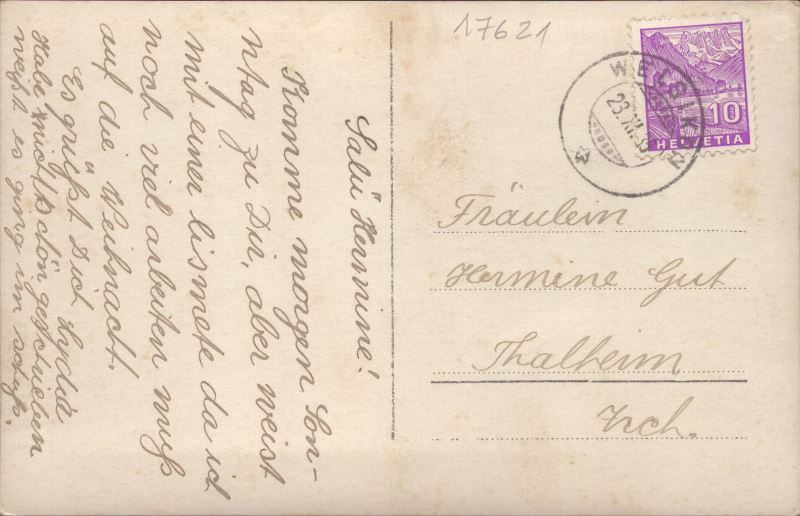 Salü Hermine!
Komme morgen Son-
ntag zu Dir, aber weist
mit einer lismete da ich
noch viel arbeiten muß
auf die Weihnacht.
Es grüßt Dich Lydia
Habe nicht schön geschrieben
weißt es ging im schuß.
17621
WELSIKON
23.XII.33
10
HELVETIA
Fräulein
Hermine Gut
Thalheim
Zrch.